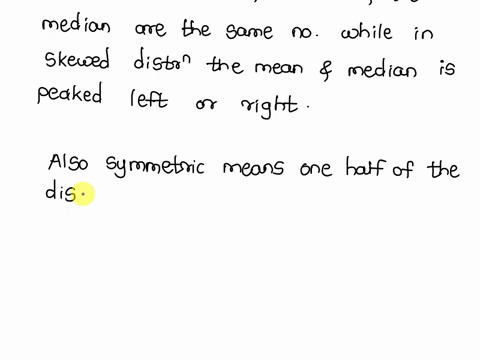 median are the same no. while in
skewed distrⁿ the mean & median is
peaked left or right.
Also symmetric means one half of the
dis